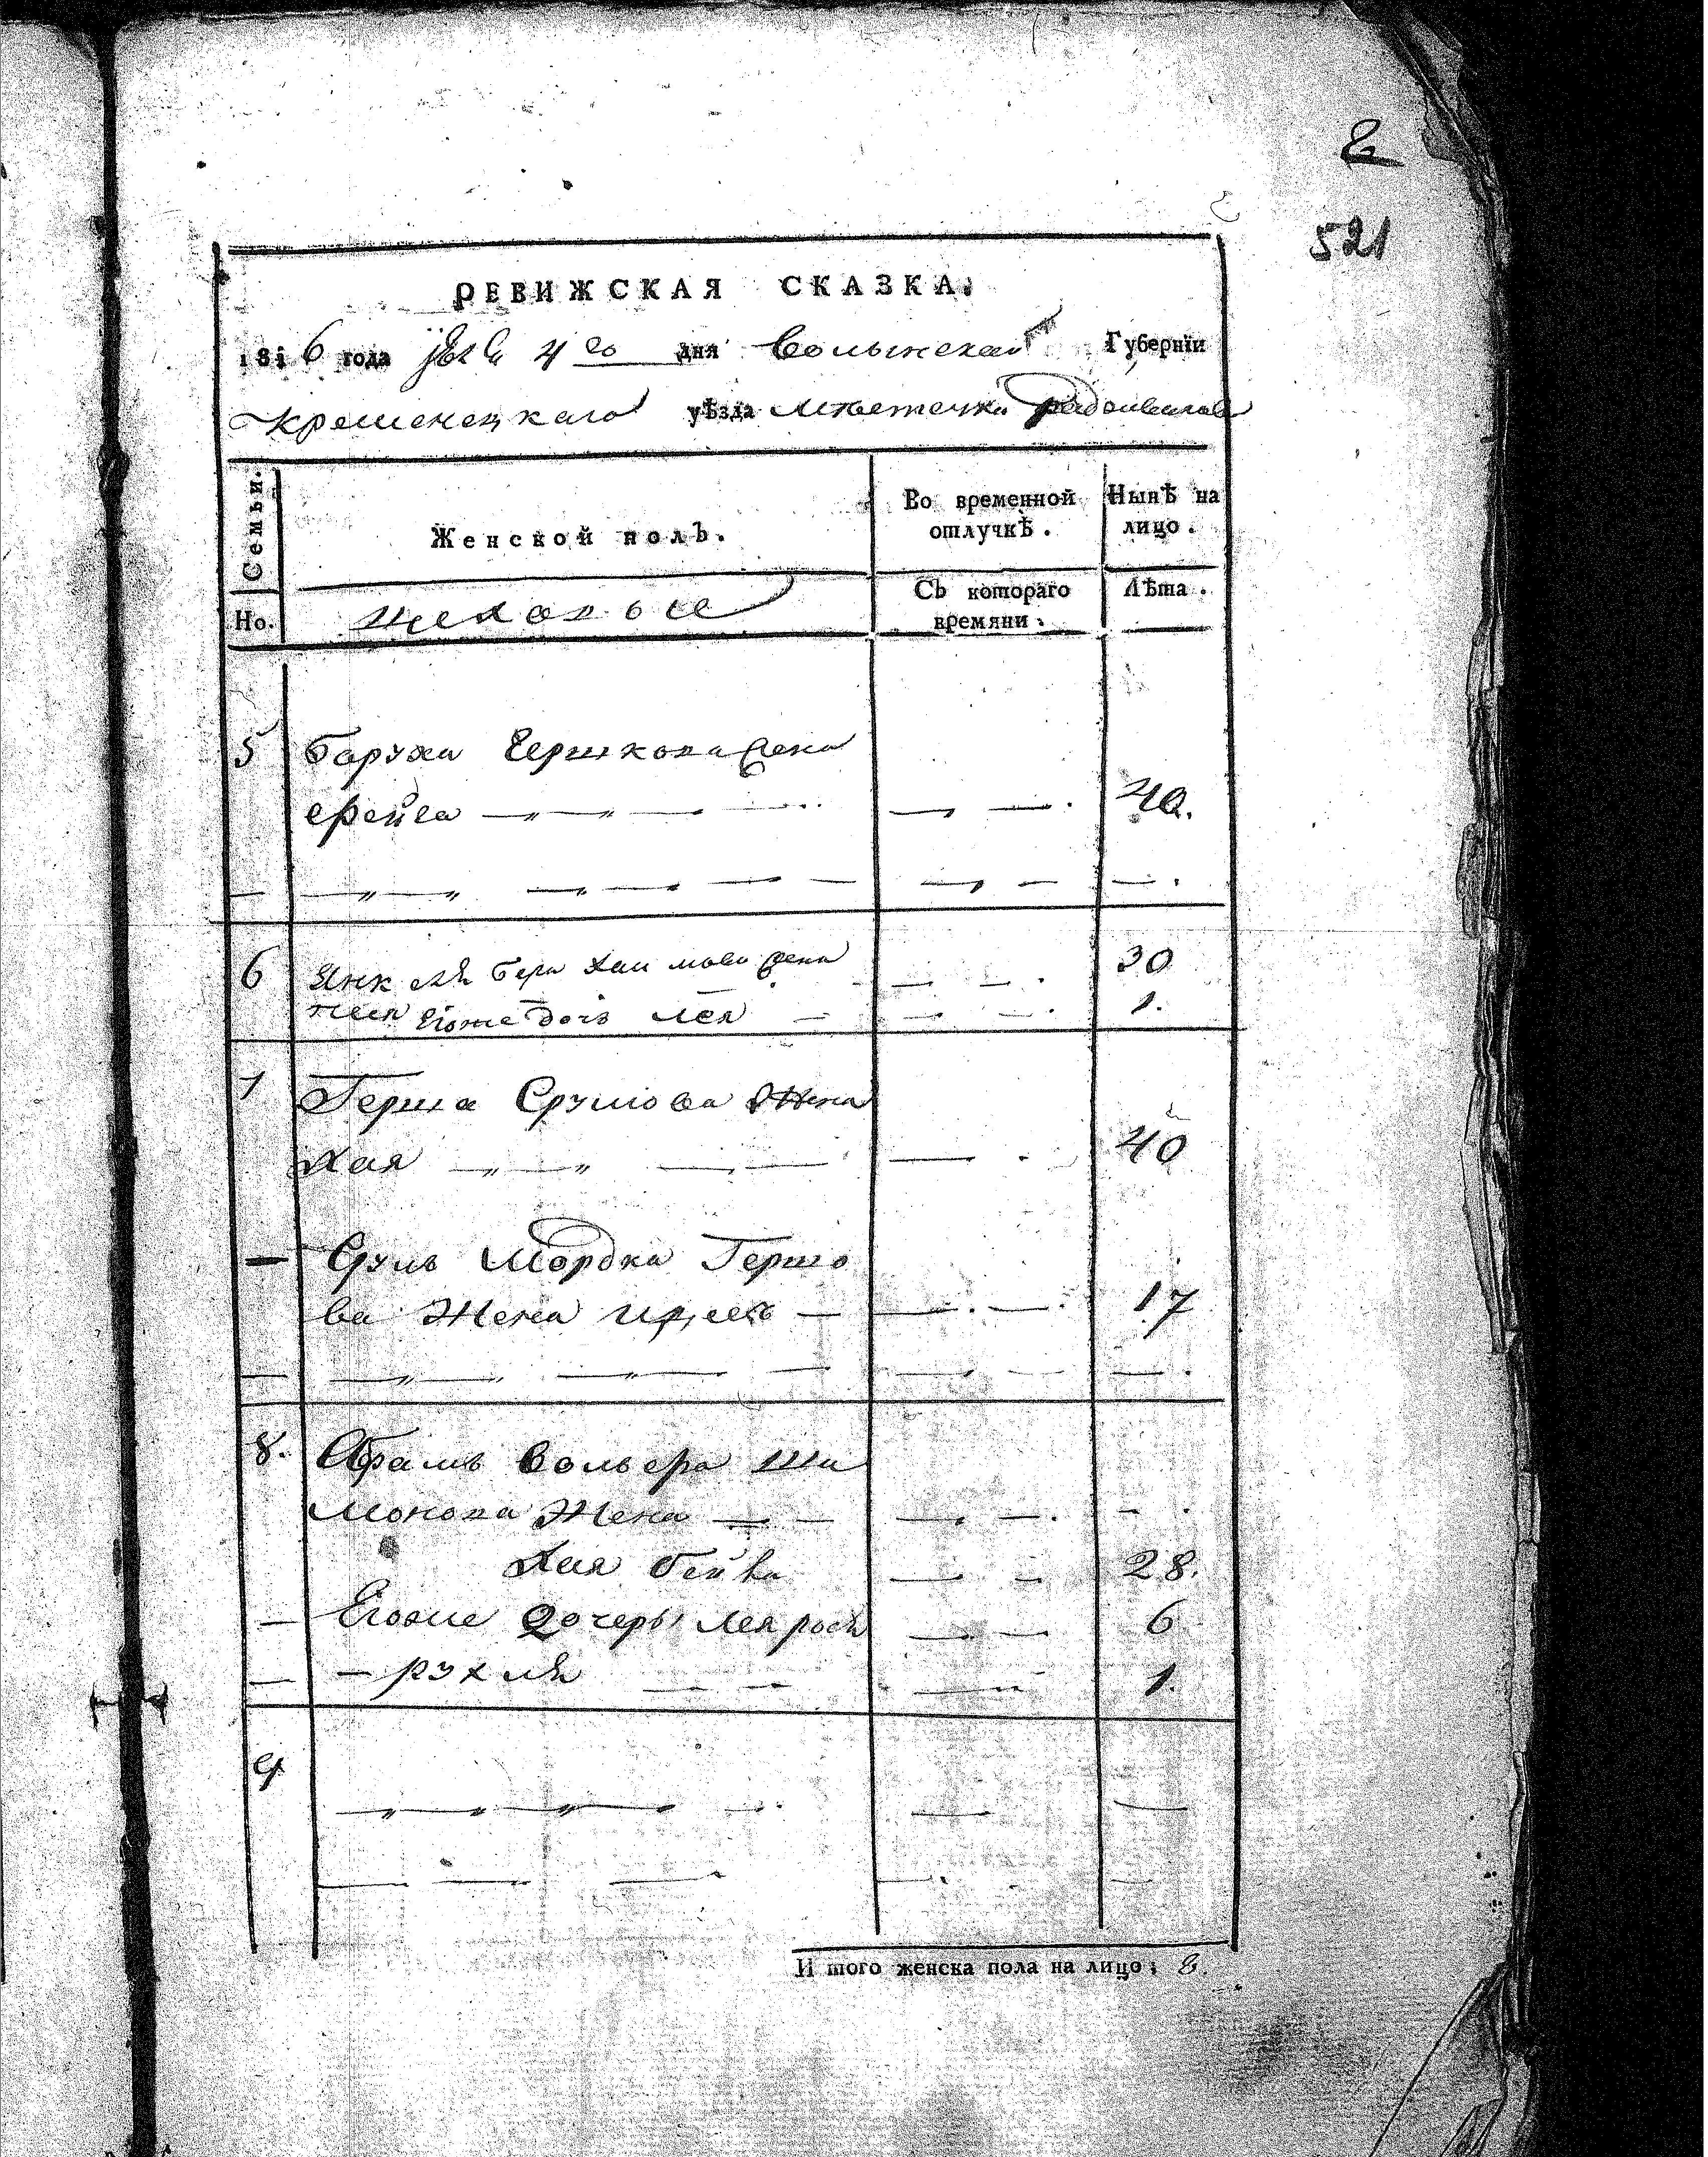 2
521
РЕВИЖСКАЯ СКАЗКА.
1816 года 4го дня Волынской Губернїи
Кременецкаго уѣзда Местечка Радзивилова
Семьи.
Женской полъ.
Во временной отлучкѣ.
Нынѣ на лицо.
Но.
Съ котораго времяни.
Лѣта.
5 Баруха Гершкова жена
Фейга 40.
6 Янкеля Бера Хаимова жена 30
Песя Егоже дочь Лея 1.
7 Герша Срулова Жена
Хая 40
Сруль Мордка Гершо
ва Жена 17
8. Абрамъ Вольфа Ши
монова Жена
Хая Бейла 28.
Егоже дочеры Лея Рося 6
Рухля 1.
9
И того женска пола на лицо: 8.